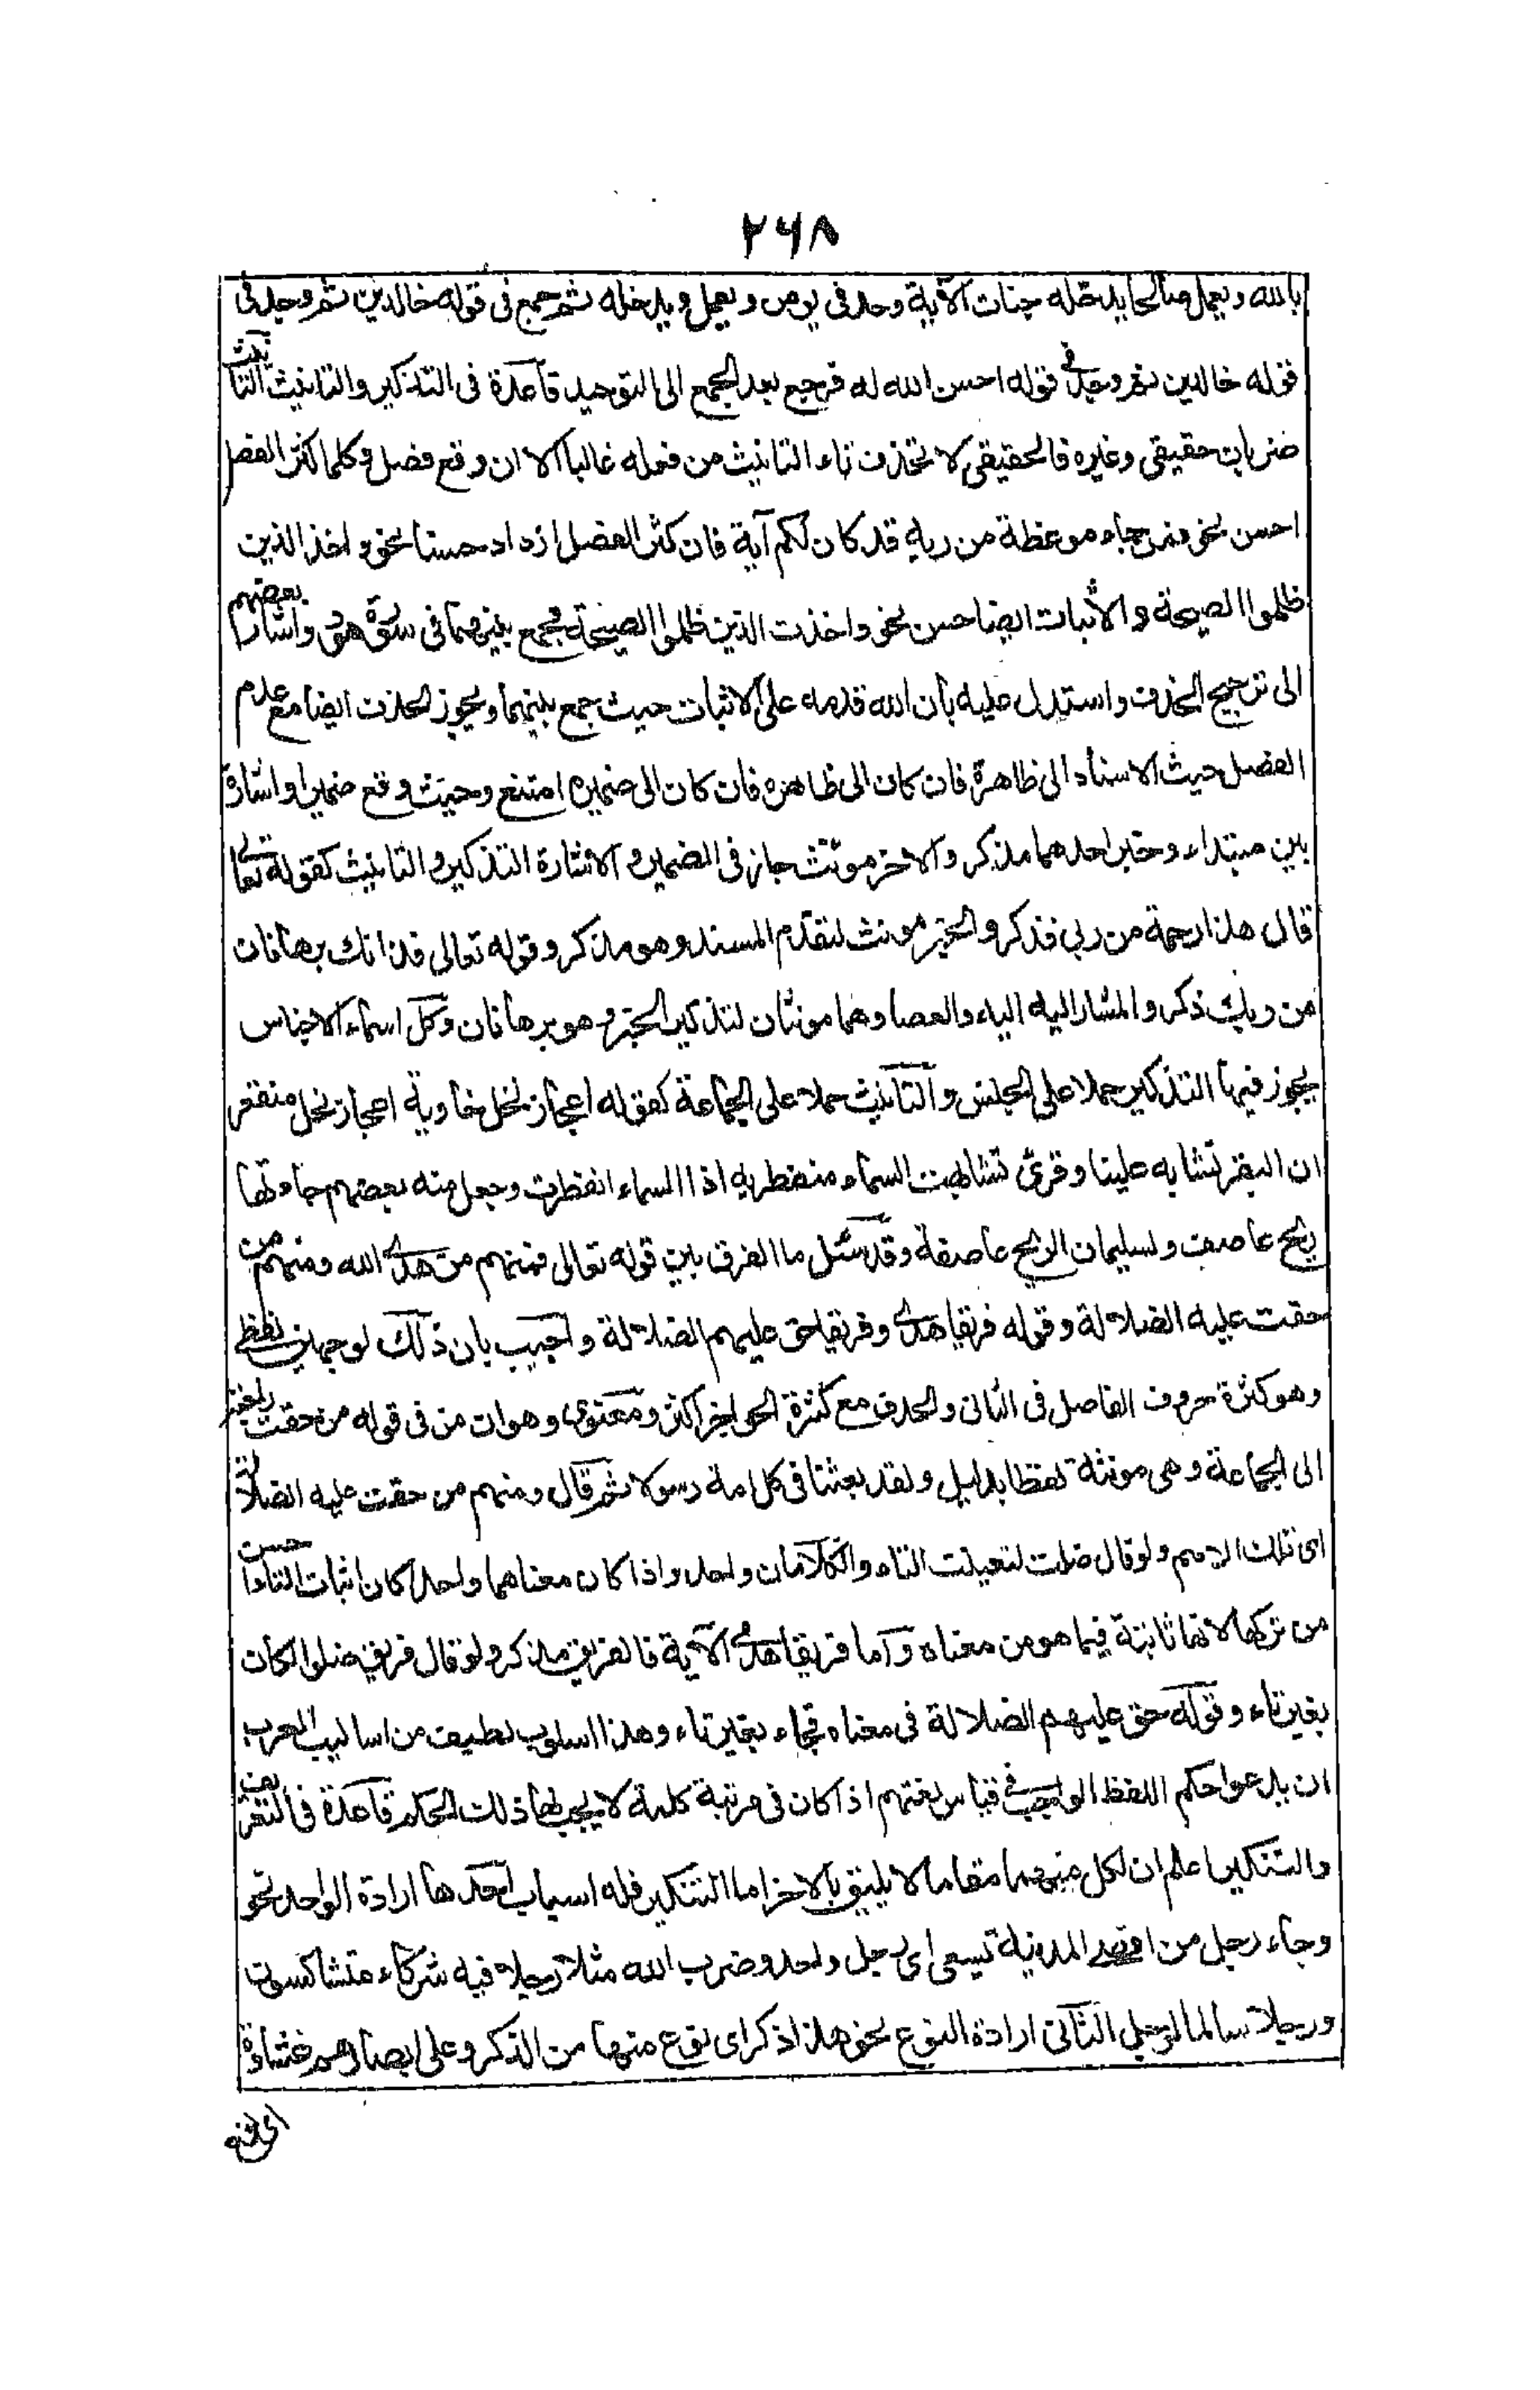 ٢٦٨
بالله ويعمل صالحا يدخله جنات الآية وحد فى يومن ويعمل ويدخله ثم جمع فى قوله خالدين ثم وحد فى
قوله خالدين ثم وحد فى قوله احسن الله له فرجع بعد الجمع الى التوحيد قاعدة فى التذكير والتانيث التانيث
ضربان حقيقى وغيره فالحقيقى لا تحذف تاء التانيث من فعله غالبا الا ان وقع فصل وكلما كثر الفصل
احسن نحو فمن جاءه موعظة من ربه قد كان لكم آية فان كثر الفصل ازداد حسنا نحو واخذ الذين
ظلموا الصيحة والاثبات ايضا حسن نحو واخذت الذين ظلموا الصيحة فجمع بينهما فى سورة هود واشار بعضهم
الى ترجيح الحذف واستدل عليه بأن الله قدمه على الاثبات حيث جمع بينهما ويجوز الحذف ايضا مع عدم
الفصل حيث الاسناد الى ظاهرة فان كان الى ظاهره فان كان الى ضميره امتنع وحيث وقع ضمير او اشارة
بين مبتداء وخبر احدهما مذكر والاخر مونث جاز فى الضمير والاشارة التذكير والتانيث كقوله تعالى
قال هذا رحمة من ربى فذكر والخبر مونث لتقدم المسند وهو مذكر وقوله تعالى فذانك برهانان
من ربك ذكر والمشار اليه اليد والعصا وهما مونثان لتذكير الخبر وهو برهانان وكل اسماء الاجناس
يجوز فيها التذكير حملا على الجنس والتانيث حملا على الجماعة كقوله اعجاز نخل خاوية اعجاز نخل منقعر
ان البقر تشابه علينا وقرئ تشابهت السماء منفطر به اذا السماء انفطرت وجعل منه بعضهم جاءتها
ريح عاصف ولسليمان الريح عاصفة وقد سئل ما الفرق بين قوله تعالى فمنهم من هدى الله ومنهم من
حقت عليه الضلالة وقوله فريقا هدى وفريقا حق عليهم الضلالة واجيب بأن ذلك لوجهين لفظى
وهو كثرة حروف الفاصل فى الثانى والحذف مع كثرة الحواجز اكثر ومعنوى وهو ان من فى قوله من حقت راجعة
الى الجماعة وهى مونثة لفظا بدليل ولقد بعثنا فى كل امة رسولا ثم قال ومنهم من حقت عليه الضلالة
اى تلك الامم ولو قال ضلت لتعينت التاء والكلامان واحد واذا كان معناهما واحدا كان اثبات التاء احسن
من تركها لانها ثابتة فيما هو من معناه واما فريقا هدى الآية فالفريق مذكر ولو قال فريق ضلوا لكان
بغير تاء وقوله حق عليهم الضلالة فى معناه فجاء بغير تاء وهذا اسلوب لطيف من اساليب العرب
ان يدعوا حكم اللفظ الواجب فى قياس لغتهم اذا كان فى مرتبة كلمة لا يجب لها ذلك الحكم قاعدة فى التعريف
والتنكير اعلم ان لكل منهما مقاما لا يليق بالاخر اما التنكير فله اسباب احدها ارادة الواحد نحو
وجاء رجل من اقصى المدينة يسعى اى رجل واحد وضرب الله مثلا رجلا فيه شركاء متشاكسون
ورجلا سالما لرجل الثانى ارادة النوع نحو هذا ذكر اى نوع منها من الذكر وعلى ابصارهم غشاوة